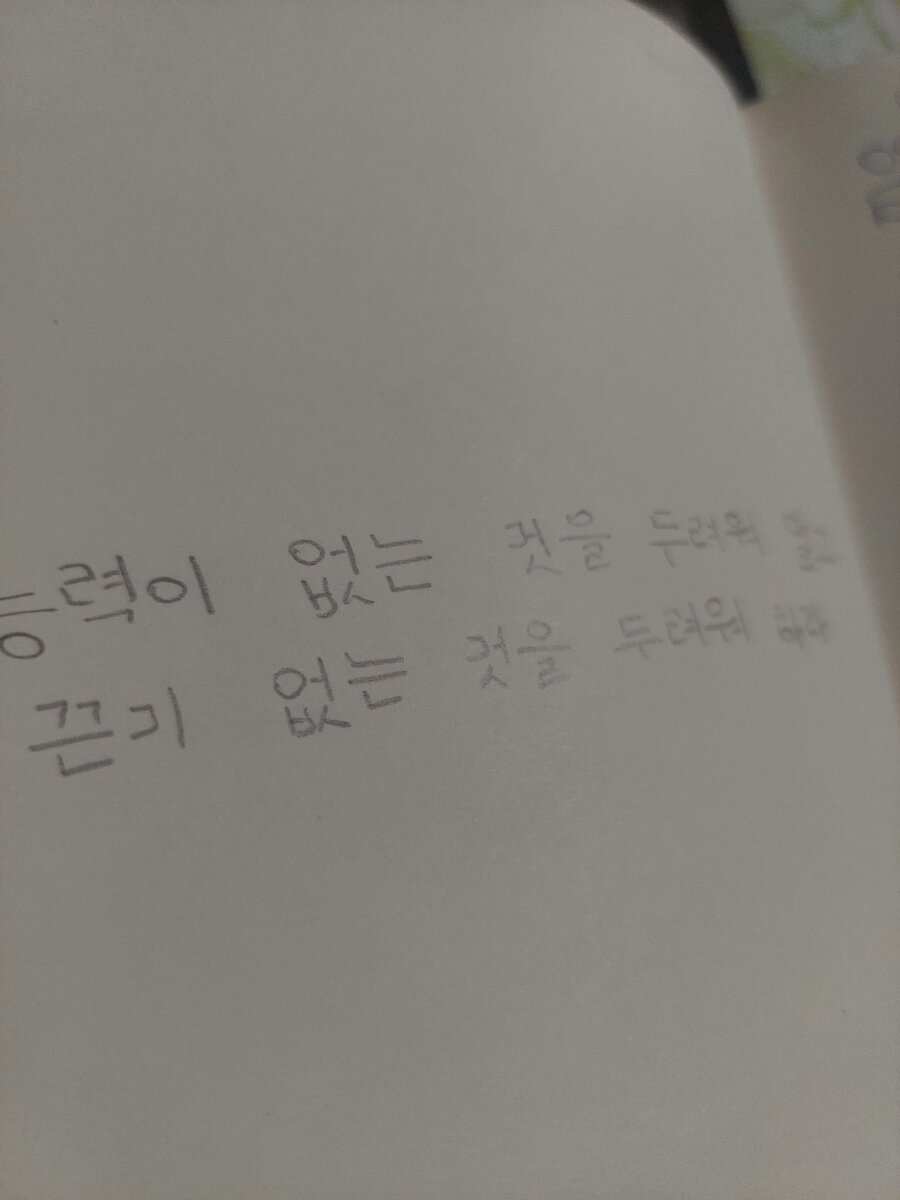 능력이 없는 것을 두려워
끈기 없는 것을 두려워 하라